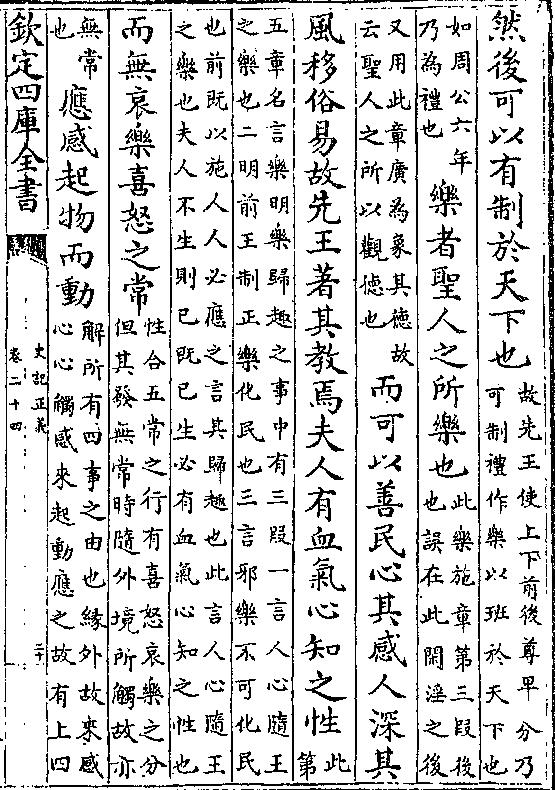 然後可以有制於天下也
故先王使上下前後尊卑分乃
可制禮作樂以班於天下也
如周公六年
乃為禮也
樂者聖人之所樂也
此樂施章第三段後
也誤在此閑淫之後
又用此章廣為象其德故
云聖人之所以觀德也
而可以善民心其感人深其
風移俗易故先王著其教焉夫人有血氣心知之性
此
第
五章名言樂明樂歸趣之事中有三段一言人心隨王
之樂也二明前王制正樂化民也三言邪樂不可化民
也前既以施人人必應之言其歸趣也此言人心隨王
之樂也夫人不生則已既已生必有血氣心知之性也
而無哀樂喜怒之常
性合五常之行有喜怒哀樂之分
但其發無常時隨外境所觸故亦
無常
也
應感起物而動
解所有四事之由也緣外故來感
心心觸感來起動應之故有上四
欽定四庫全書
史記正義
卷二十四